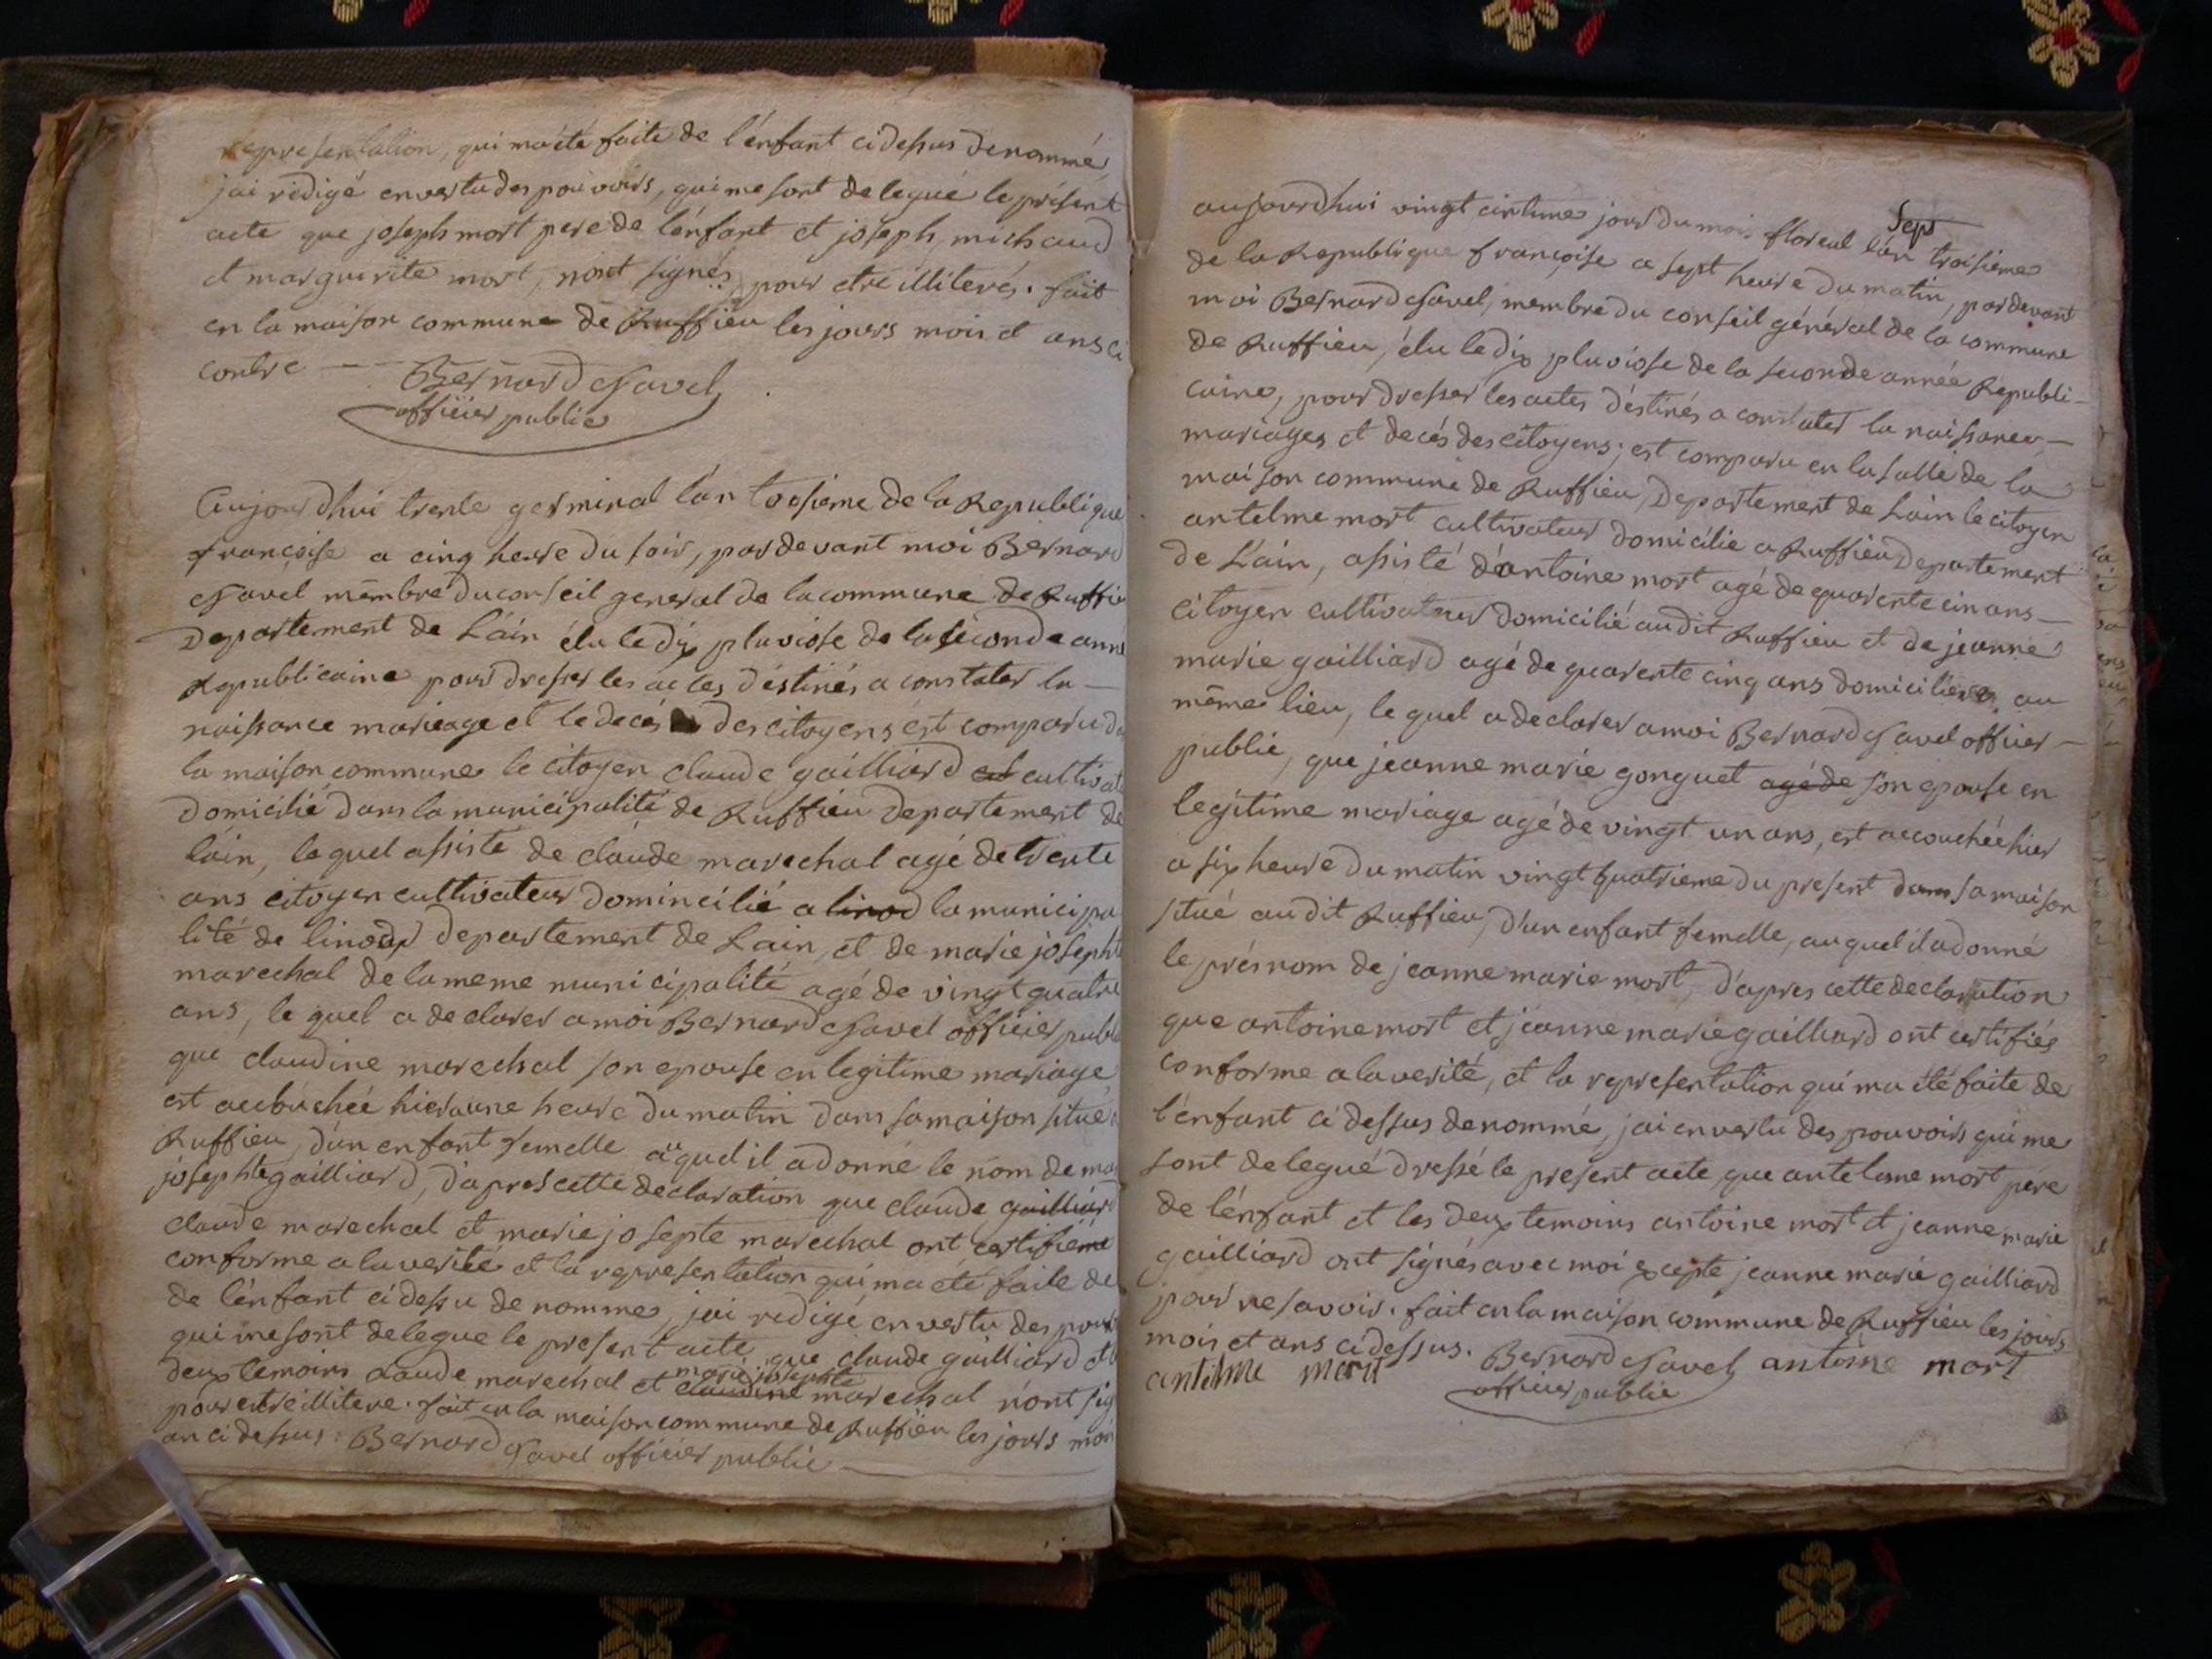 representation, qui ma été faite de l'énfant ci dessus denommé,
jai rédigé en vertu des pouvoirs, qui me sont delegué le présent
acte que joseph mort pere de l'énfant et joseph michaud
et marguerite mort, n'ont signés pour etre illiterés. fait
en la maison commune de Ruffieu les jours mois et ans ci
contre
Bernard Savel
officier public
Aujourdhui trente germinal l'an troisieme de la Republique
françoise a cinq heure du soir, par devant moi Bernard
Savel membre du conseil general de la commune de Ruffie
Departement de L'ain élu le dix pluviose de la seconde ann
Republicaine pour dresser les actes déstinés a constater la
naissance mariage et le decés des citoyens est comparu d
la maison commune le citoyen claude gailliard cultivat
domicilié dans la municipalité de Ruffieu Departement de
l'ain, le quel assisté de claude marechal agé de trente
ans citoyen cultivateur domincilié a linod la municipa
lité de linod departement de Lain, et de marie josephte
marechal de la meme municipalité agé de vingt quatre
ans, le quel a declarer a moi Bernard Savel officier publi
que claudine marechal son epouse en legitime mariage
est accouchée hier a une heure du matin dans sa maison situé
Ruffieu, d'un enfant femelle au quel il a donné le nom de ma
josephte gailliard, d'apres cette declaration que claude gailliard
claude marechal et marie josepte marechal ont certifié
conforme a la verité et la representation qui ma été faite de
de l'énfant ci dessu denommé, jai redigé en vertu des pouv
qui me sont delegue le present acte que claude gailliard et
deux temoins claude marechal et claudine marie josephte marechal n'ont sig
pour etre illitere. fait en la maison commune de Ruffieu les jours moi
an ci dessus: Bernard Savel officier public
aujourdhui vingt cintime jour du mois floreal l'an troisieme
Sept
de la Republique françoise a sept heure du matin, par devant
moi Bernard Savel, membre du conseil général de la commune
de Ruffieu, élu le dix pluviose de la seconde année Republi-
caine, pour dresser les actes d'éstinés a constater la naissance
mariages et decés des citoyens; est comparu en la salle de la
maison commune de Ruffieu, Departement de Lain le citoyen
antelme mort cultivateur domicilie a Ruffieu departement
de L'ain, assisté d'antoine mort agé de quarente cin ans
citoyen cultivateur domicilié audit Ruffieu et de jeanne
marie gailliard agé de quarente cinq ans domiciliere au
même lieu, le quel a declarer a moi Bernard Savel officier
public, que jeanne marie gonguet agé de son epouse en
legitime mariage agé de vingt un ans, est accouchée hier
a six heure du matin vingt quatrieme du present dans sa maison
situé audit Ruffieu, d'un enfant femelle, au quel il a donné
le présnom de jeanne marie mort, d'apres cette declaration
que antoine mort et jeanne marie gailliard ont certifiés
conforme a la verité, et la representation qui ma été faite de
l'énfant ci dessus denommé, jai en vertu des pouvoirs qui me
sont delegué dressé le present acte, que antelme mort pére
de l'énfant et les deux temoins antoine mort et jeanne marie
gailliard ont signés avec moi excepte jeanne marie gailliard
pour ne savoir. fait en la maison commune de Ruffieu les jours
mois et ans ci dessus.
antelme mort Bernard Savel antoine mort
officier public